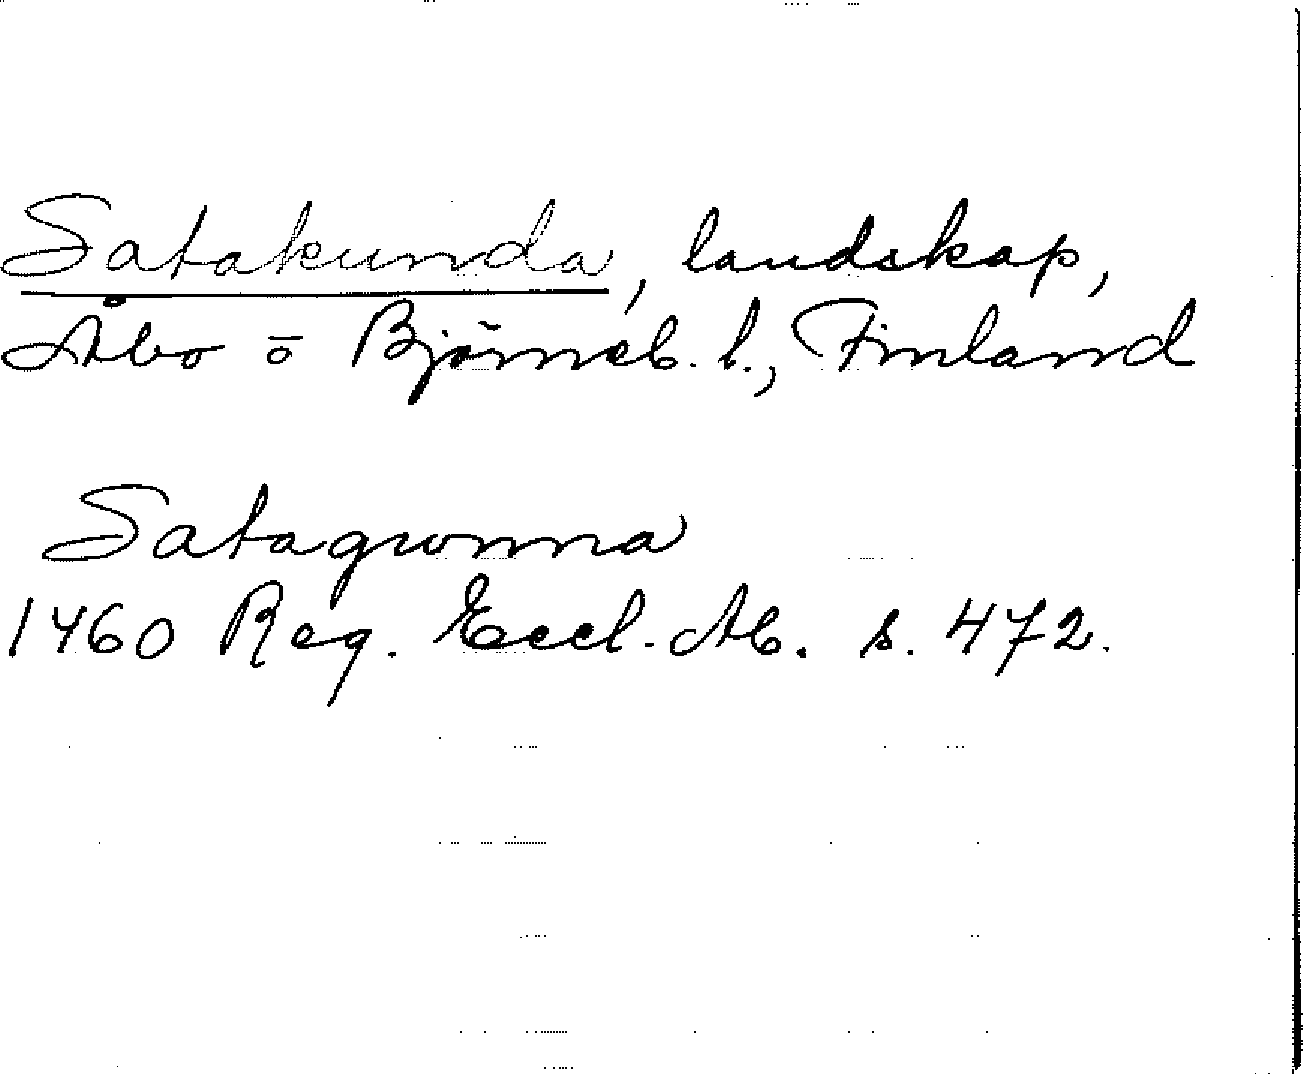 Satakunda, landskap,
Åbo o Björneb. l., Finland
Satagwnna
1460 Reg. Eccl. Ab. s. 472.